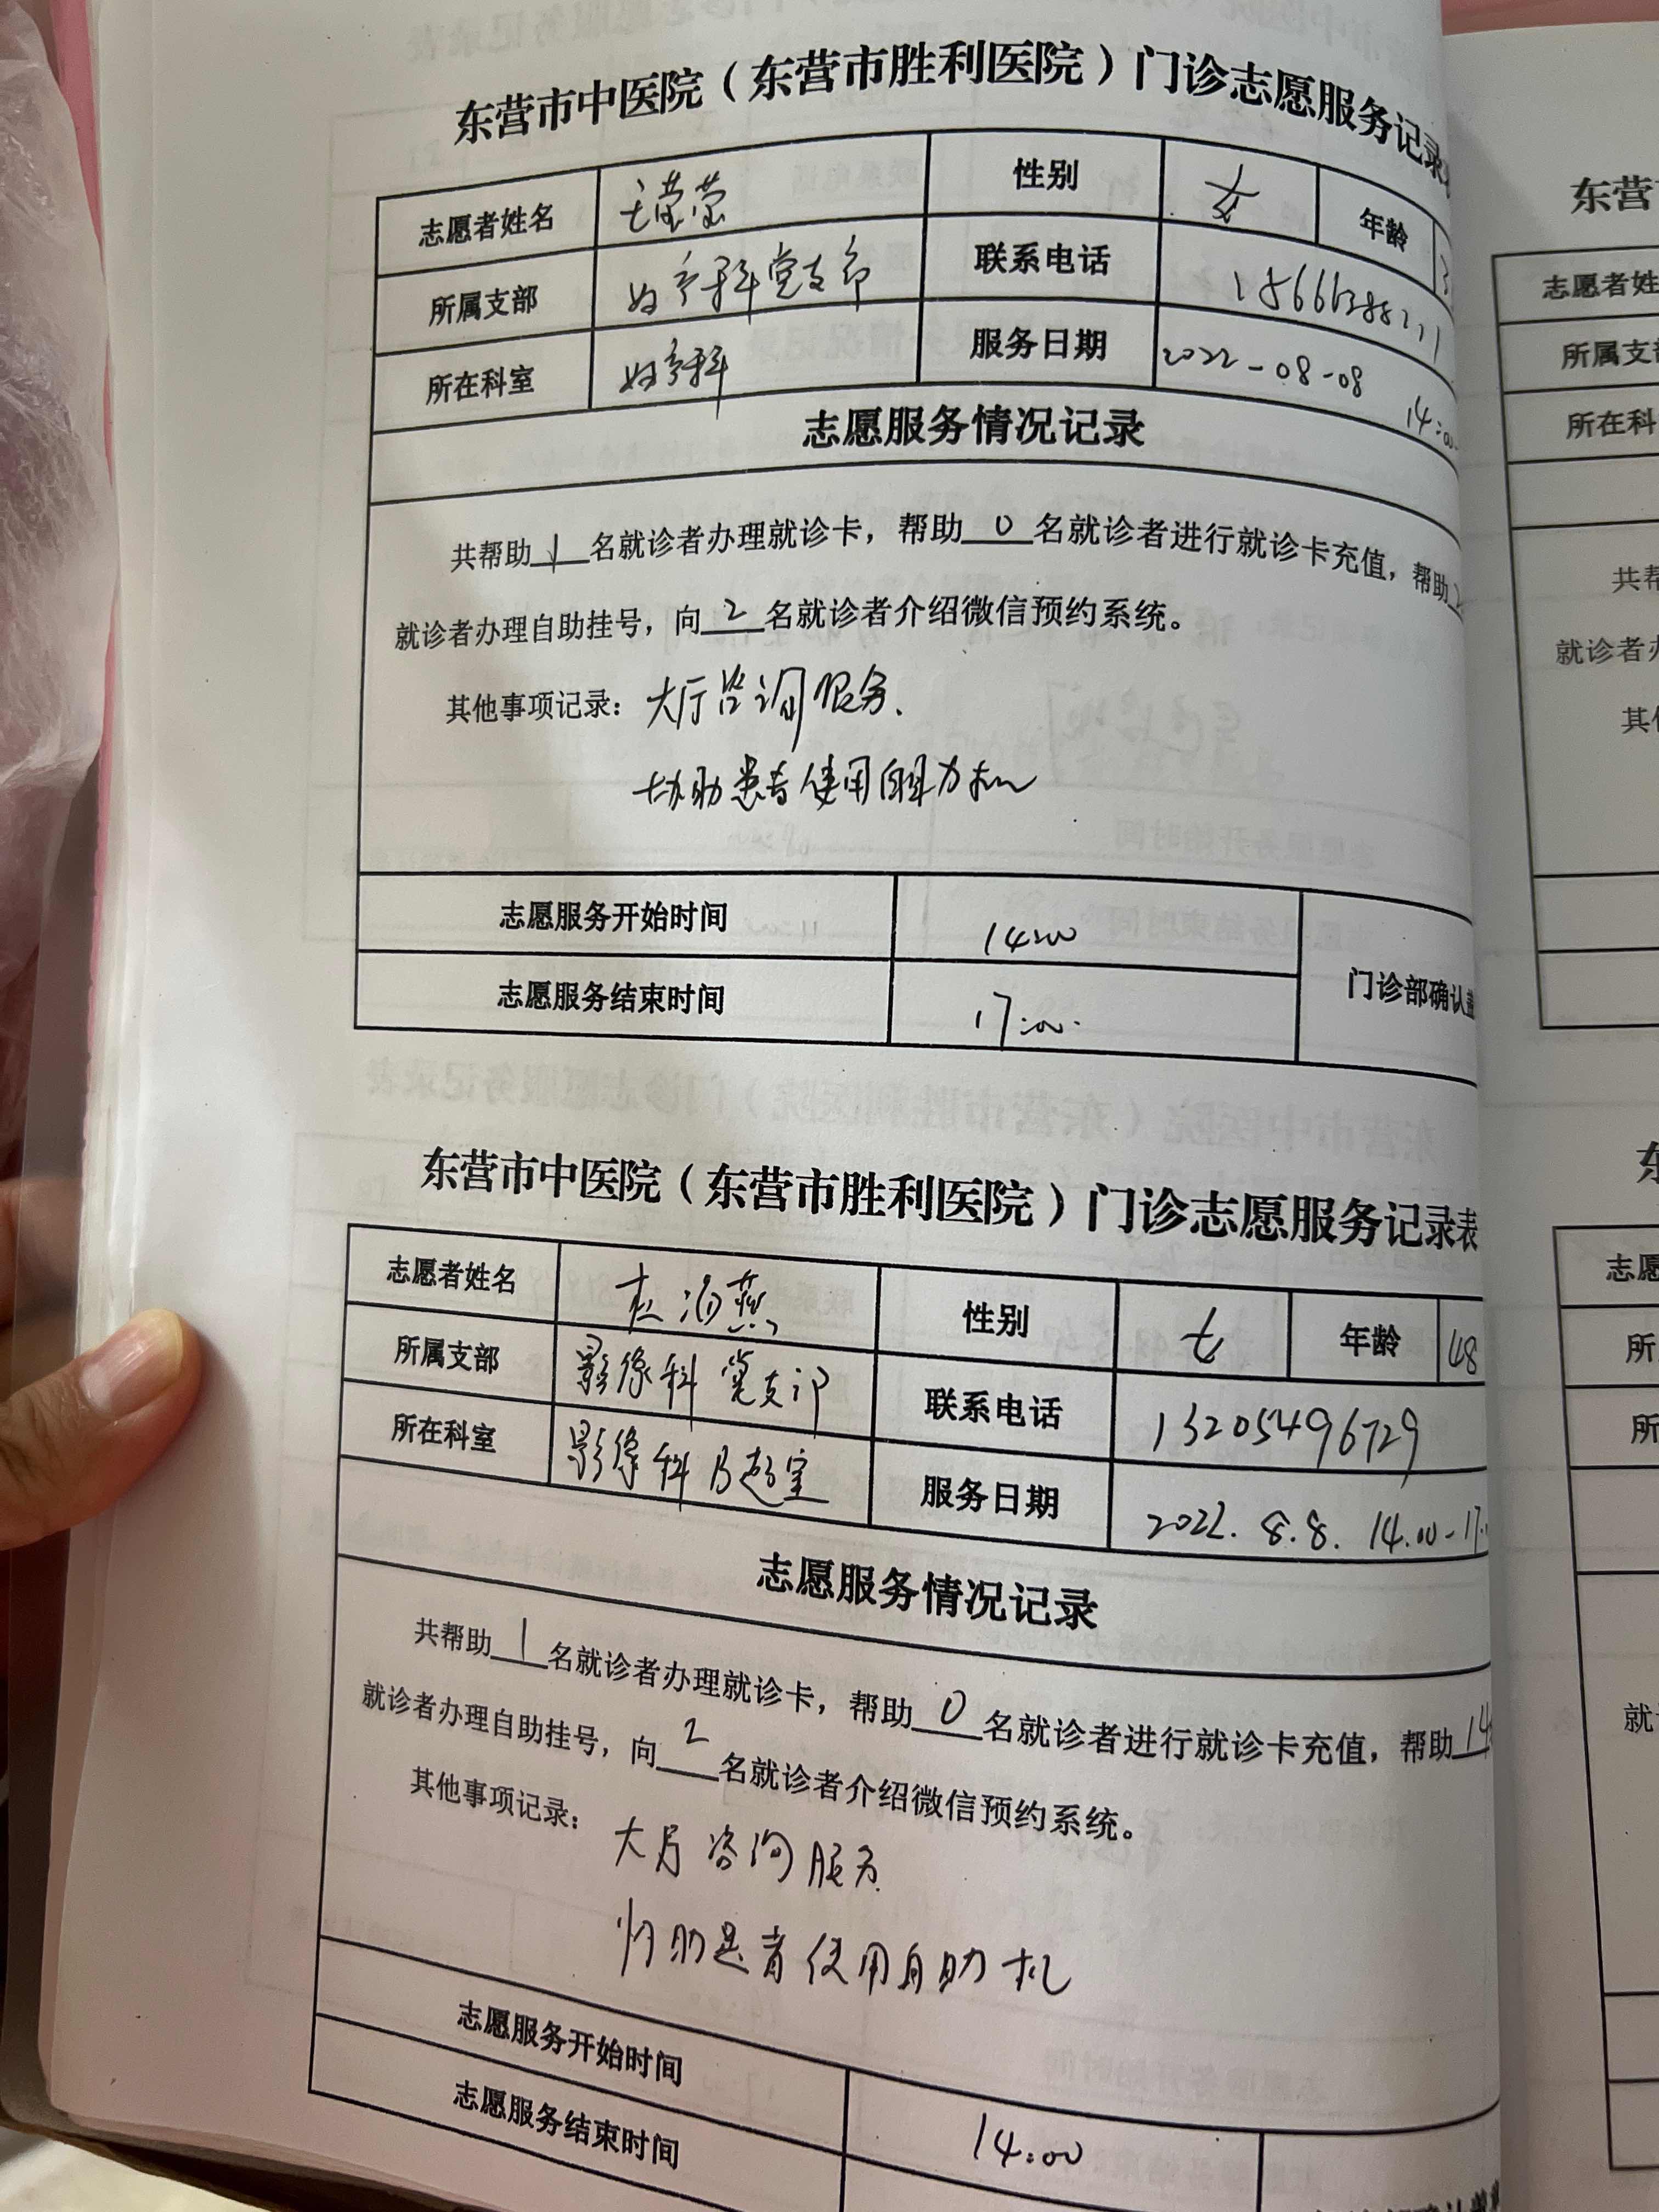 东营市中医院（东营市胜利医院）门诊志愿服务记录
志愿者姓名 王莹莹 性别 女 年龄 3
所属支部 妇产科党支部 联系电话
所在科室 妇产科 服务日期 2022-08-08 14:00-
志愿服务情况记录
共帮助 1 名就诊者办理就诊卡，帮助 0 名就诊者进行就诊卡充值，帮助
就诊者办理自助挂号，向 2 名就诊者介绍微信预约系统。
其他事项记录：大厅咨询服务.
协助患者使用自助机
志愿服务开始时间 14:00
志愿服务结束时间 17:00.
门诊部确认盖
东营市中医院（东营市胜利医院）门诊志愿服务记录表
志愿者姓名 燕 性别 女 年龄 48
所属支部 影像科党支部 联系电话 13205496729
所在科室 影像科B超室 服务日期 2022.8.8. 14.00-17.
志愿服务情况记录
共帮助 1 名就诊者办理就诊卡，帮助 0 名就诊者进行就诊卡充值，帮助 14
就诊者办理自助挂号，向 2 名就诊者介绍微信预约系统。
其他事项记录：大厅咨询服务.
协助患者使用自助机
志愿服务开始时间 14:00
志愿服务结束时间
东营
志愿者姓
所属支部
所在科
共帮
就诊者办
其他
东
志愿
所
所
就诊